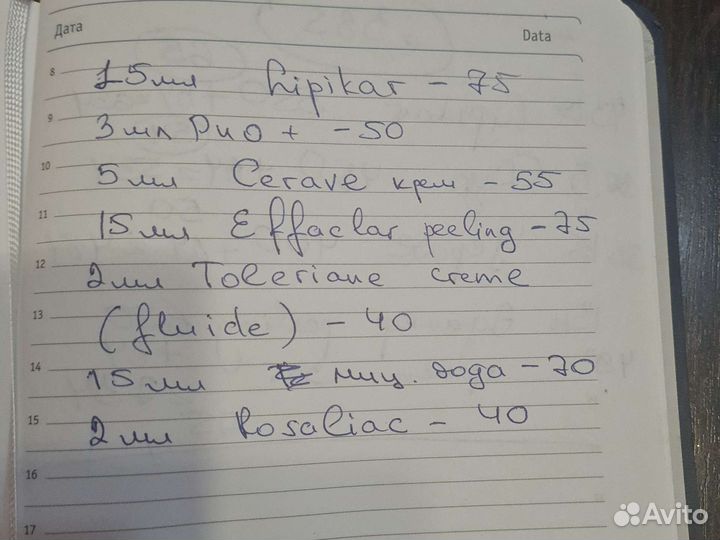 Дата Data
8 15мл Lipikar - 75
9 3мл Duo + - 50
10 5мл Cerave крем - 55
11 15мл Effaclar peeling - 75
12 2мл Toleriane creme
13 (fluide) - 40
14 15мл миц. вода - 70
15 2мл Rosaliac - 40
16
17
Avito